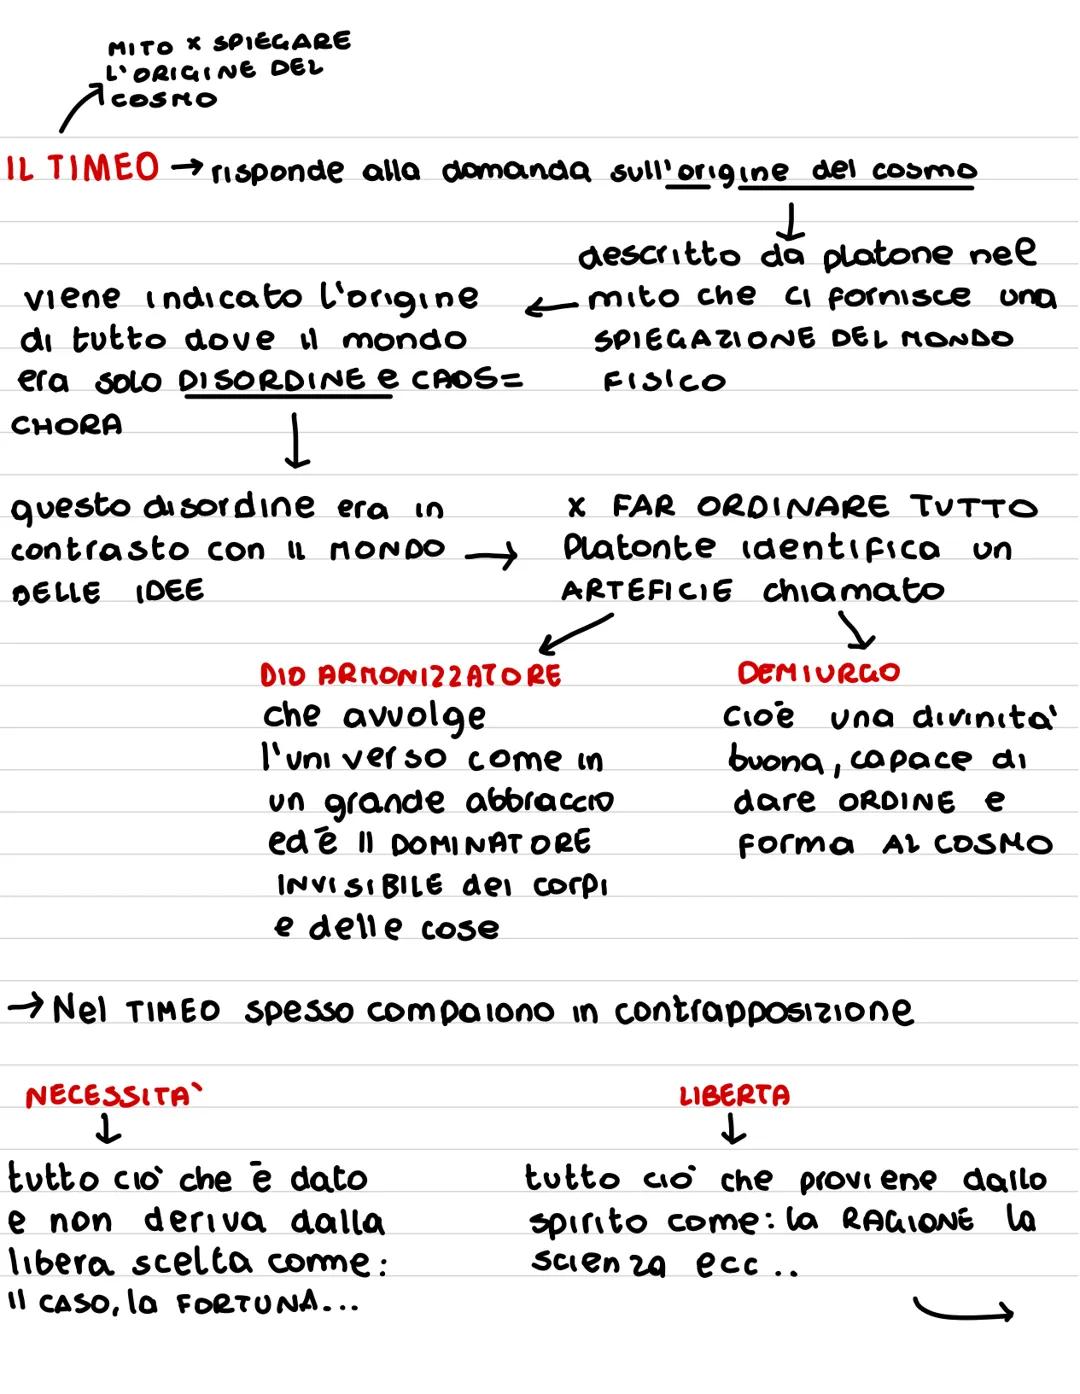 MITO x SPIEGARE
L'ORIGINE DEL
COSMO
IL TIMEO → risponde alla domanda sull'origine del cosmo
descritto da platone nel
mito che ci fornisce una
SPIEGAZIONE DEL MONDO
FISICO
viene indicato l'origine
di tutto dove il mondo
era solo DISORDINE e CAOS=
CHORA
questo disordine era in
contrasto con il MONDO
DELLE IDEE
x FAR ORDINARE TUTTO
Platonte identifica un
ARTEFICIE chiamato
DIO ARMONIZZATORE
che avvolge
l'universo come in
un grande abbraccio
ed è il DOMINATORE
INVISIBILE dei corpi
e delle cose
DEMIURGO
cioè una divinità
buona, capace di
dare ORDINE e
forma AL COSMO
→ Nel TIMEO spesso compaiono in contrapposizione
NECESSITÀ
tutto ciò che è dato
e non deriva dalla
libera scelta comme:
il CASO, la FORTUNA...
LIBERTA
tutto ciò che proviene dallo
spirito come: la RAGIONE la
scienza ecc..